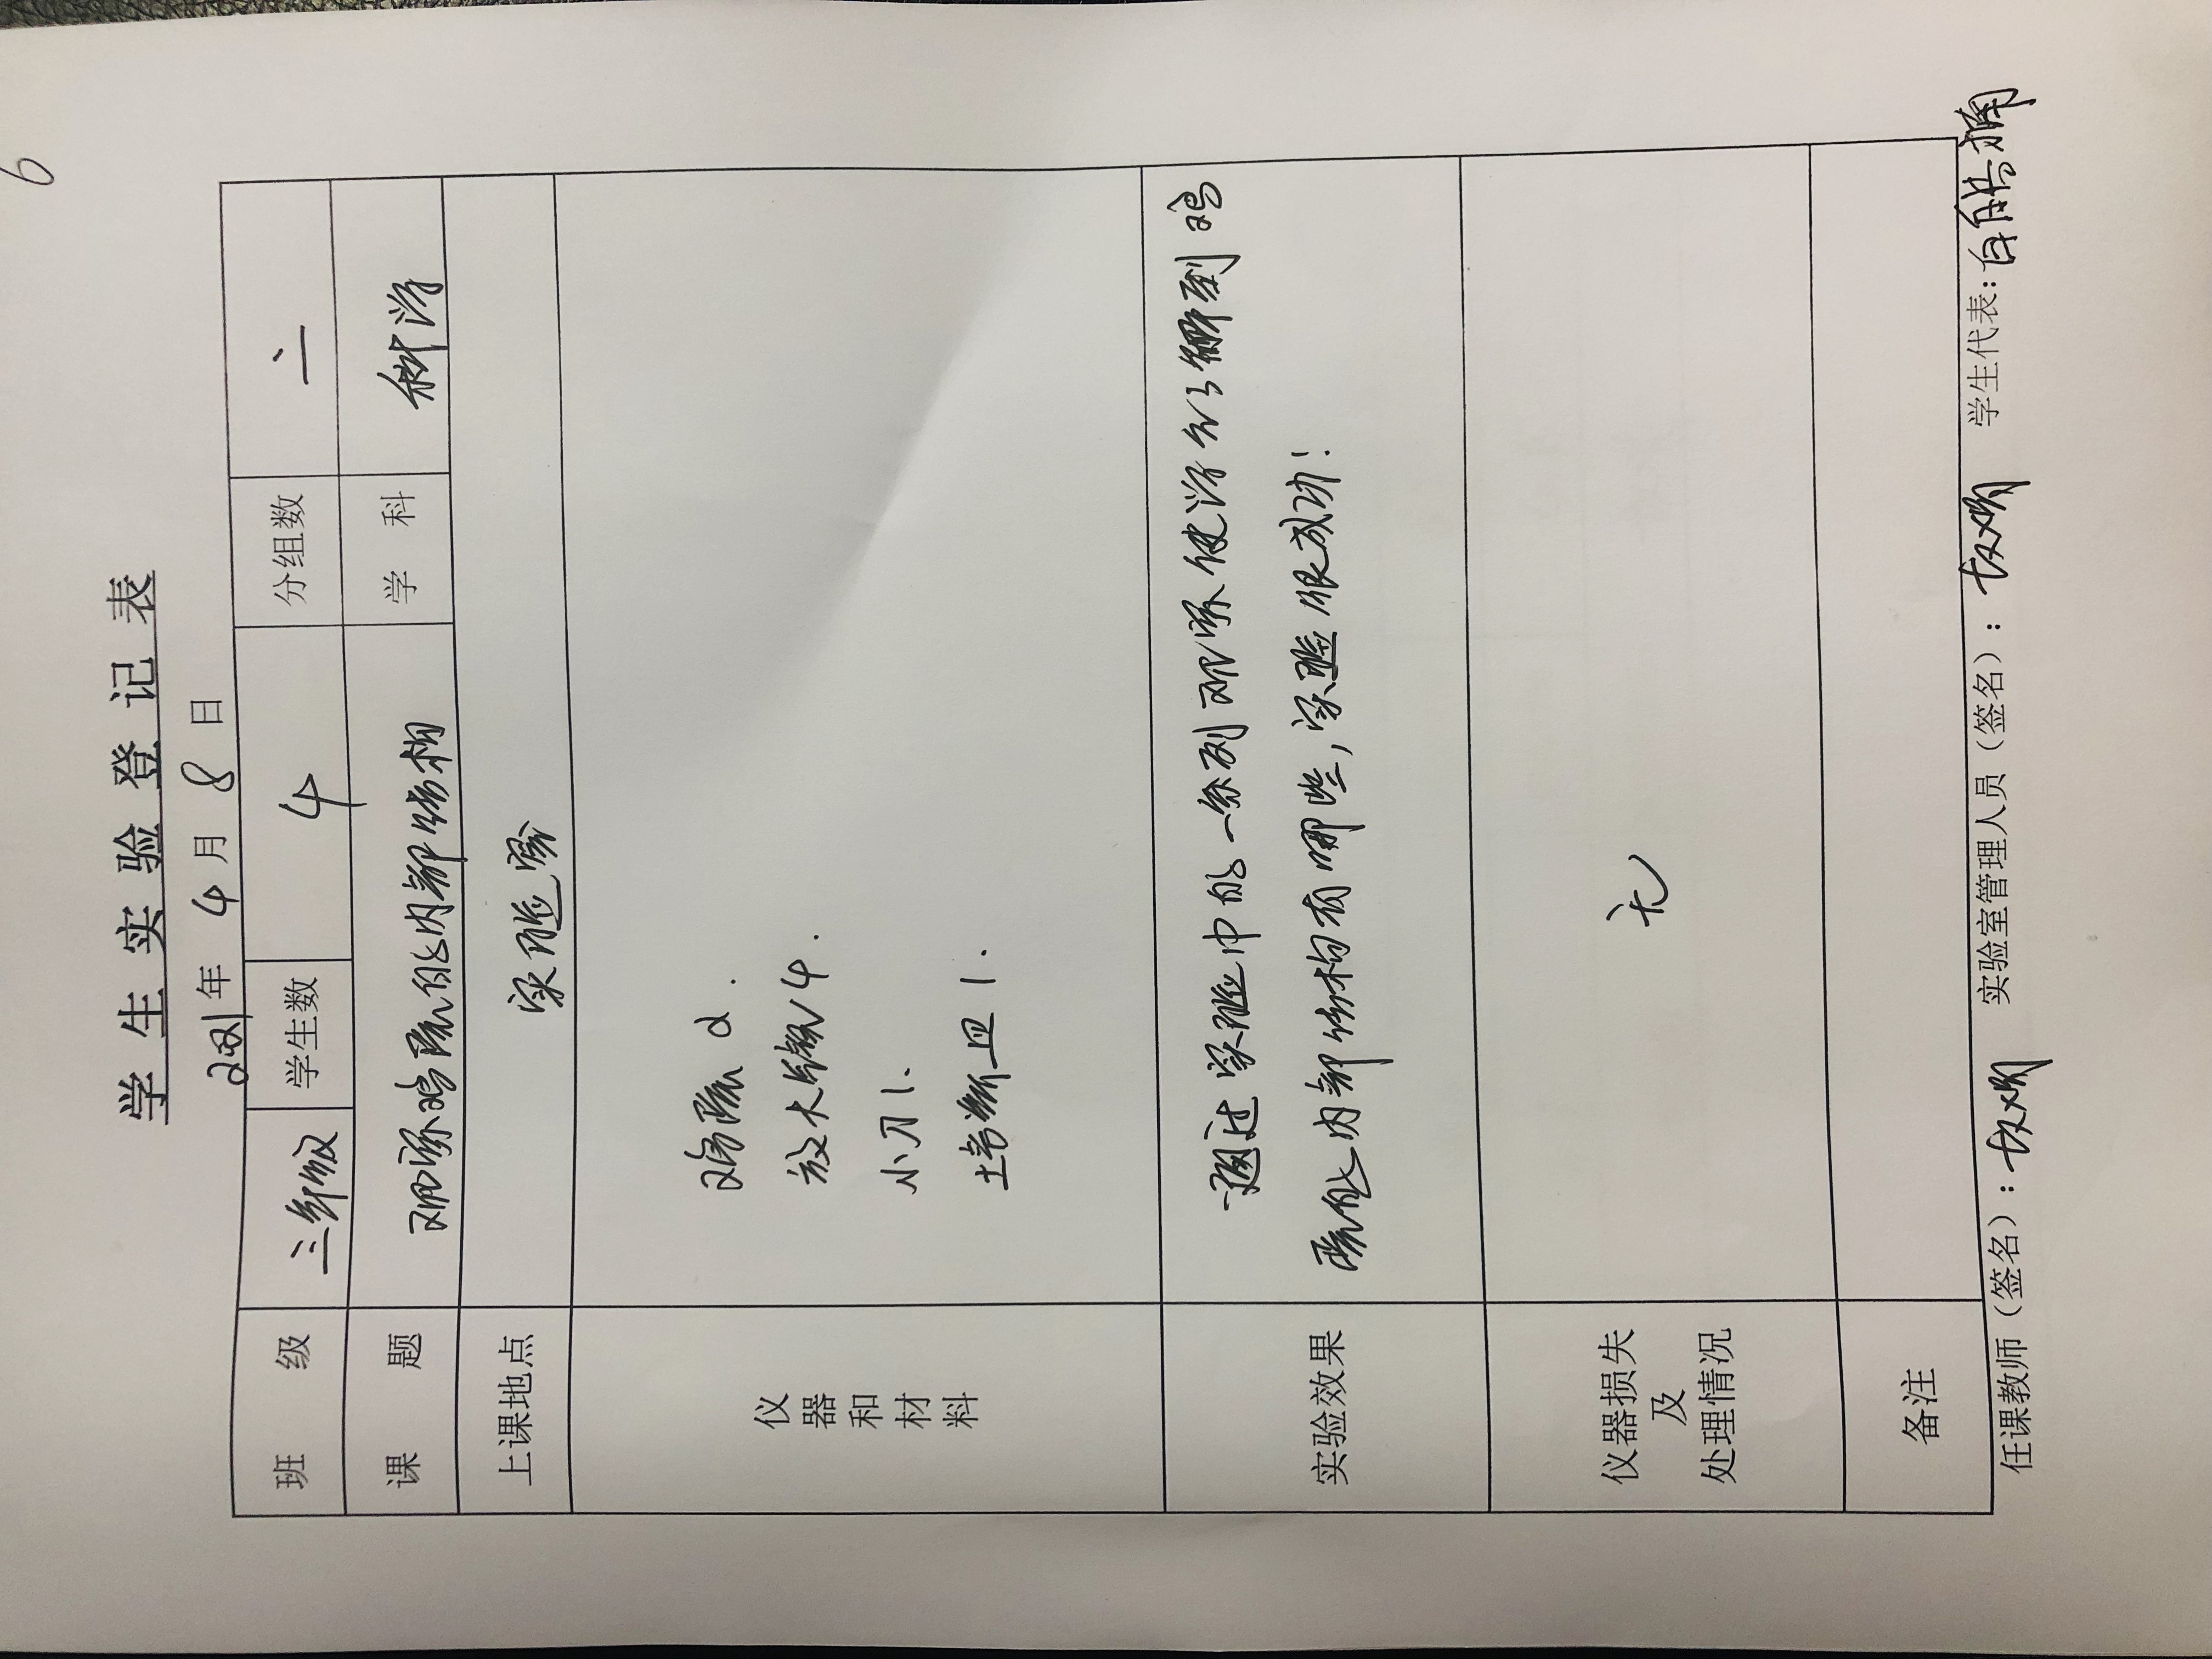 6
学生实验登记表
2021年 4月 8日
班级 三年级 学生数 4 分组数 二
课题 观察鸡蛋的内部结构 学科 科学
上课地点 实验室
仪器和材料
鸡蛋 2.
放大镜 4.
小刀 1.
培养皿 1.
实验效果
通过实验中的一系列观察使学生了解到鸡
蛋的内部结构有哪些,实验很成功!
仪器损失
及
处理情况
无
备注
任课教师(签名): 实验室管理人员(签名): 学生代表: